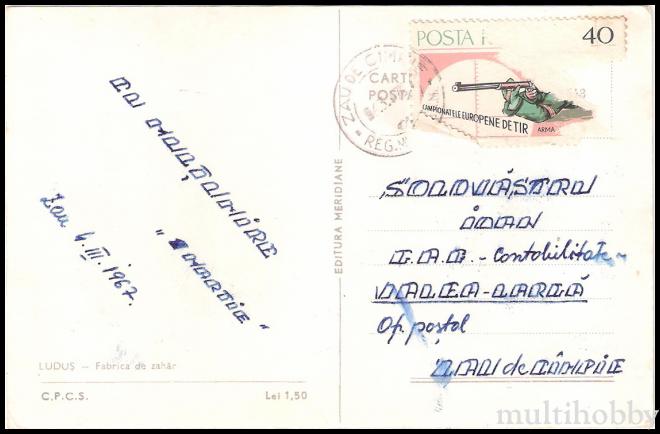 CU MULȚUMIRE
"8 MARTIE"
Zau 4.III.1967.
LUDUȘ — Fabrica de zahăr
C.P.C.S.
Lei 1,50
EDITURA MERIDIANE
POSTA
40
CAMPIONATELE EUROPENE DE TIR
ARMA
ZAU DE CIMPIE
REG.
CARTI
POSTA
SOLOVĂSTRU
IOAN
C.A.C. - Contabilitate -
VALEA-LARGĂ
Of. poștal
ZAU de CÎMPIE
multihobby